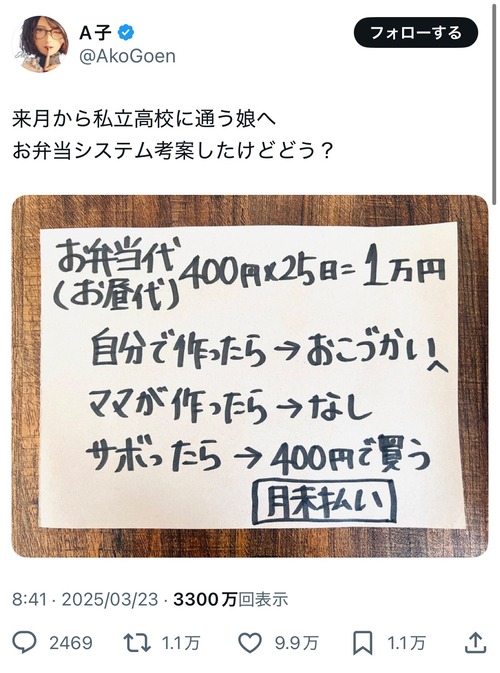 A子
@AkoGoen
フォローする
来月から私立高校に通う娘へ
お弁当システム考案したけどどう？
お弁当代
(お昼代)
400円×25日=1万円
自分で作ったら→おこづかいへ
ママが作ったら→なし
サボったら→400円で買う
月末払い
8:41 · 2025/03/23 · 3300万回表示
2469 1.1万 9.9万 1.1万